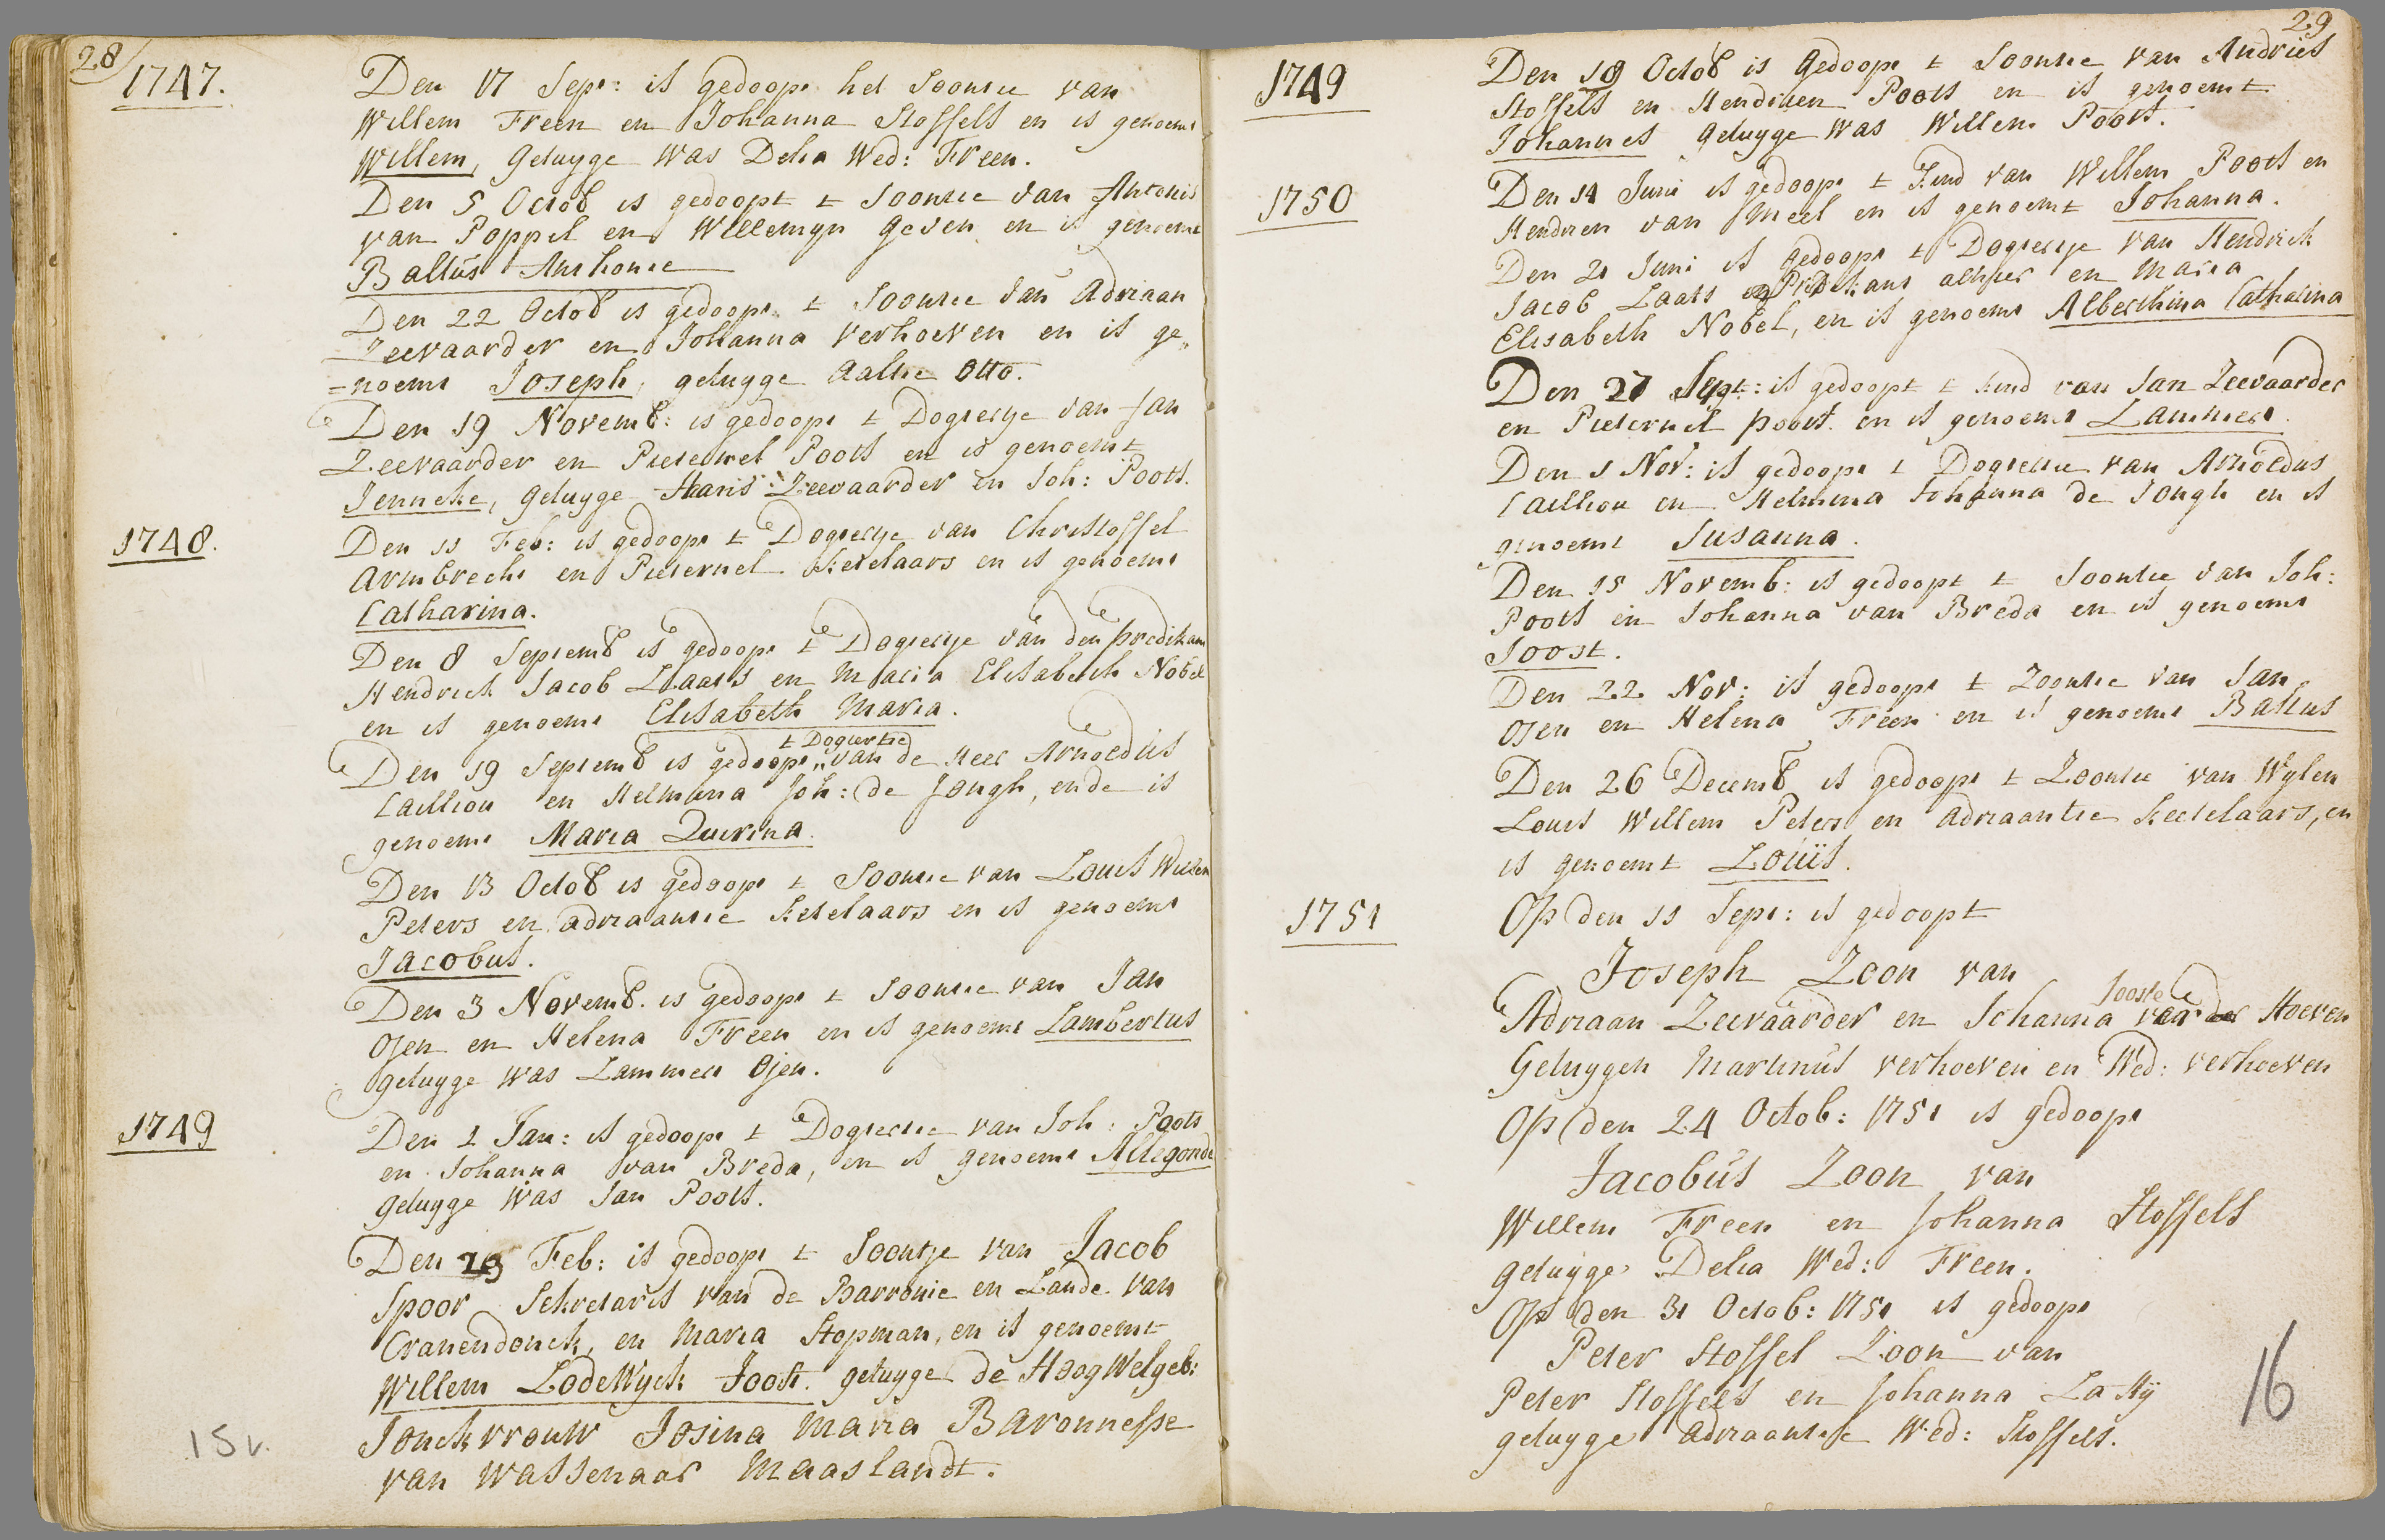 28
1747.
Den 17 Sept: is gedoopt het Soontie van
Willem Freen en Johanna Stoffels en is genoemt
Willem, Getuyge was Delia Wed: Freen.
Den 5 Octob is gedoopt t Soontie van Antonis
van Poppel en Willemyn Geven en is genoemt
Baltus Anthonie
Den 22 Octob is gedoopt t Soontie van Adriaan
Zeevaarder en Johanna Verhoeven en is ge„
=noemt Joseph, getuyge Aaltie Otto.
Den 19 Novemb: is gedoopt t Dogtertje van Jan
Zeevaarder en Pieternel Poots en is genoemt
Jenneke, Getuyge Haris Zeevaarder en Joh: Poots.
1748.
Den 11 Feb: is gedoopt t Dogtertje van Christoffel
Armbrecht en Pieternel Ketelaars en is genoemt
Catharina.
Den 8 Septemb is gedoopt t Dogtertje van den predikant
Hendrick Jacob Laats en Maria Elisabeth Nobel
en is genoemt Elisabeth Maria.
t Dogtertie
Den 19 Septemb is gedoopt „ van de Heer Arnoldus
Cailliou en Helmina Joh: de Jongh, ende is
genoemt Maria Quirina.
Den 13 Octob is gedoopt t Soontie van Louis Willem
Peters en adriaantie Ketelaars en is genoemt
Jacobus.
Den 3 Novemb. is gedoopt t Soontie van Jan
Ojen en Helena Freen en is genoemt Lambertus
getuyge was Lammert Ojen.
1749
Den 1 Jan: is gedoopt t Dogtertie van Joh: Poots
en Johanna van Breda, en is genoemt Allegonde
getuyge was Jan Poots.
Den 23 Feb: is gedoopt t Soontje van Jacob
Spoor Sekretaris van de Barronie en Lande van
Cranendonck, en Maria Stopman, en is genoemt
Willem LodeWyck Joost. getuyge de HoogWelgeb:
Jonckvrouw Josina Maria Baronnesse
van Wassenaar Maaslandt.
15v.
29
1749
Den 19 Octob is gedoopt t Soontie van Andries
Stoffels en Hendrien Poots en is genoemt
Johannes getuyge was Willem Poots.
1750
Den 14 Juni is gedoopt t Kind van Willem Poots en
Hendrien van Meel en is genoemt Johanna.
Den 21 Juni is gedoopt t Dogtertje van Hendrick
Jacob Laats Predikant alhier en Maria
Elisabeth Nobel, en is genoemt Alberthina Catharina
Den 27 Sept: is gedoopt t kind van Jan Zeevaarder
en Pieternel poots en is genoemt Lammert.
Den 1 Nov: is gedoopt t Dogtertie van Arnoldus
Cailliou en Helmina Johanna de Jongh en is
genoemt Susanna.
Den 15 Novemb: is gedoopt t Soontie van Joh:
Poots en Johanna van Breda en is genoemt
Joost.
Den 22 Nov: is gedoopt t Zoontie van Jan
Ojen en Helena Freen en is genoemt Baltus
Den 26 Decemb is gedoopt t Zoontie van Wylen
Louis Willem Peters en Adriaantie Keetelaars, en
is genoemt Louis.
1751
Op den 11 Sept: is gedoopt
Joseph Zoon van
Jooste
Adriaan Zeevaarder en Johanna van der Hoeven
Getuygen Martinus verhoeven en Wed: verhoeven
Op den 24 Octob: 1751 is gedoopt
Jacobus Zoon van
Willem Freen en Johanna Stoffels
getuyge Delia Wed: Freen.
Op den 31 Octob: 1751 is gedoopt
Peter Stoffel Zoon van
Peter Stoffels en Johanna La Hÿ
getuyge Adriaantje Wed: Stoffels.
16